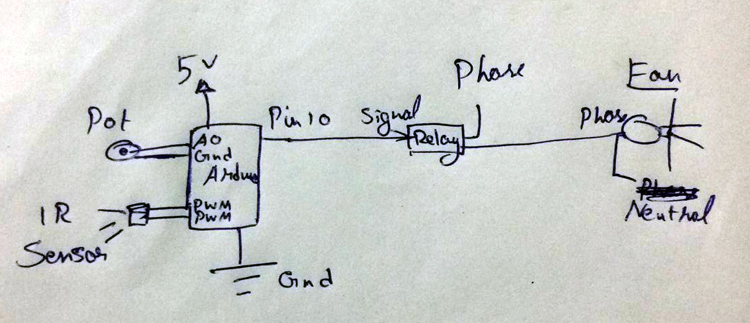 5v
Phase
Fan
Pot
Pin 10
Signal
Phase
A0
Relay
Gnd
Ardu
IR
PWM
PWM
Neutral
Sensor
Gnd